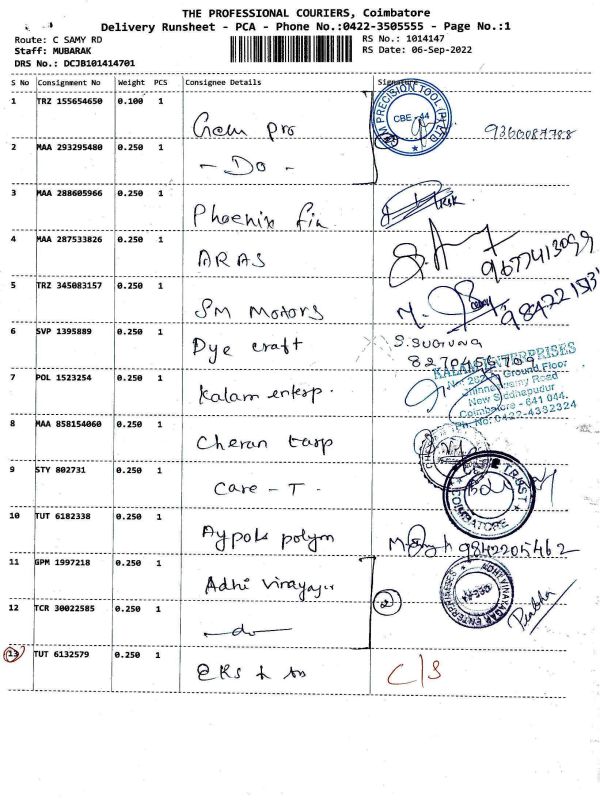 THE PROFESSIONAL COURIERS, Coimbatore
Delivery Runsheet - PCA - Phone No.:0422-3505555 - Page No.:1
Route: C SAMY RD
RS No.: 1014147
Staff: MUBARAK
RS Date: 06-Sep-2022
DRS No.: DCJB101414701
S No Consignment No Weight PCS Consignee Details Signature
1 TRZ 155654650 0.100 1 Gem pro
PRECISION TOOL (P) LTD
CBE - 44
9360087788
2 MAA 293295480 0.250 1 - Do -
3 MAA 288605966 0.250 1 Phoenix fin
4 MAA 287533826 0.250 1 ARAS
9677413099
5 TRZ 345083157 0.250 1 SM Motors
6 SVP 1395889 0.250 1 Dye craft
S.SUGUNA
8270456709
7 POL 1523254 0.250 1 Kalam enterp.
KALAM ENTERPRISES
Ground Floor
Chinnaswamy Road
New Siddhapudur
Coimbatore - 641 044.
Ph. No: 0422-4332324
8 MAA 858154060 0.250 1 Cheran tarp
9 STY 802731 0.250 1 Care - T.
TRUST
COIMBATORE
10 TUT 6182338 0.250 1 Aypols polym
9842205462
11 GPM 1997218 0.250 1 Adhi vinayagar
ADHI VINAYAGAR ENTERPRISES
2
Prabhu
12 TCR 30022585 0.250 1 - do -
13 TUT 6132579 0.250 1 C/S